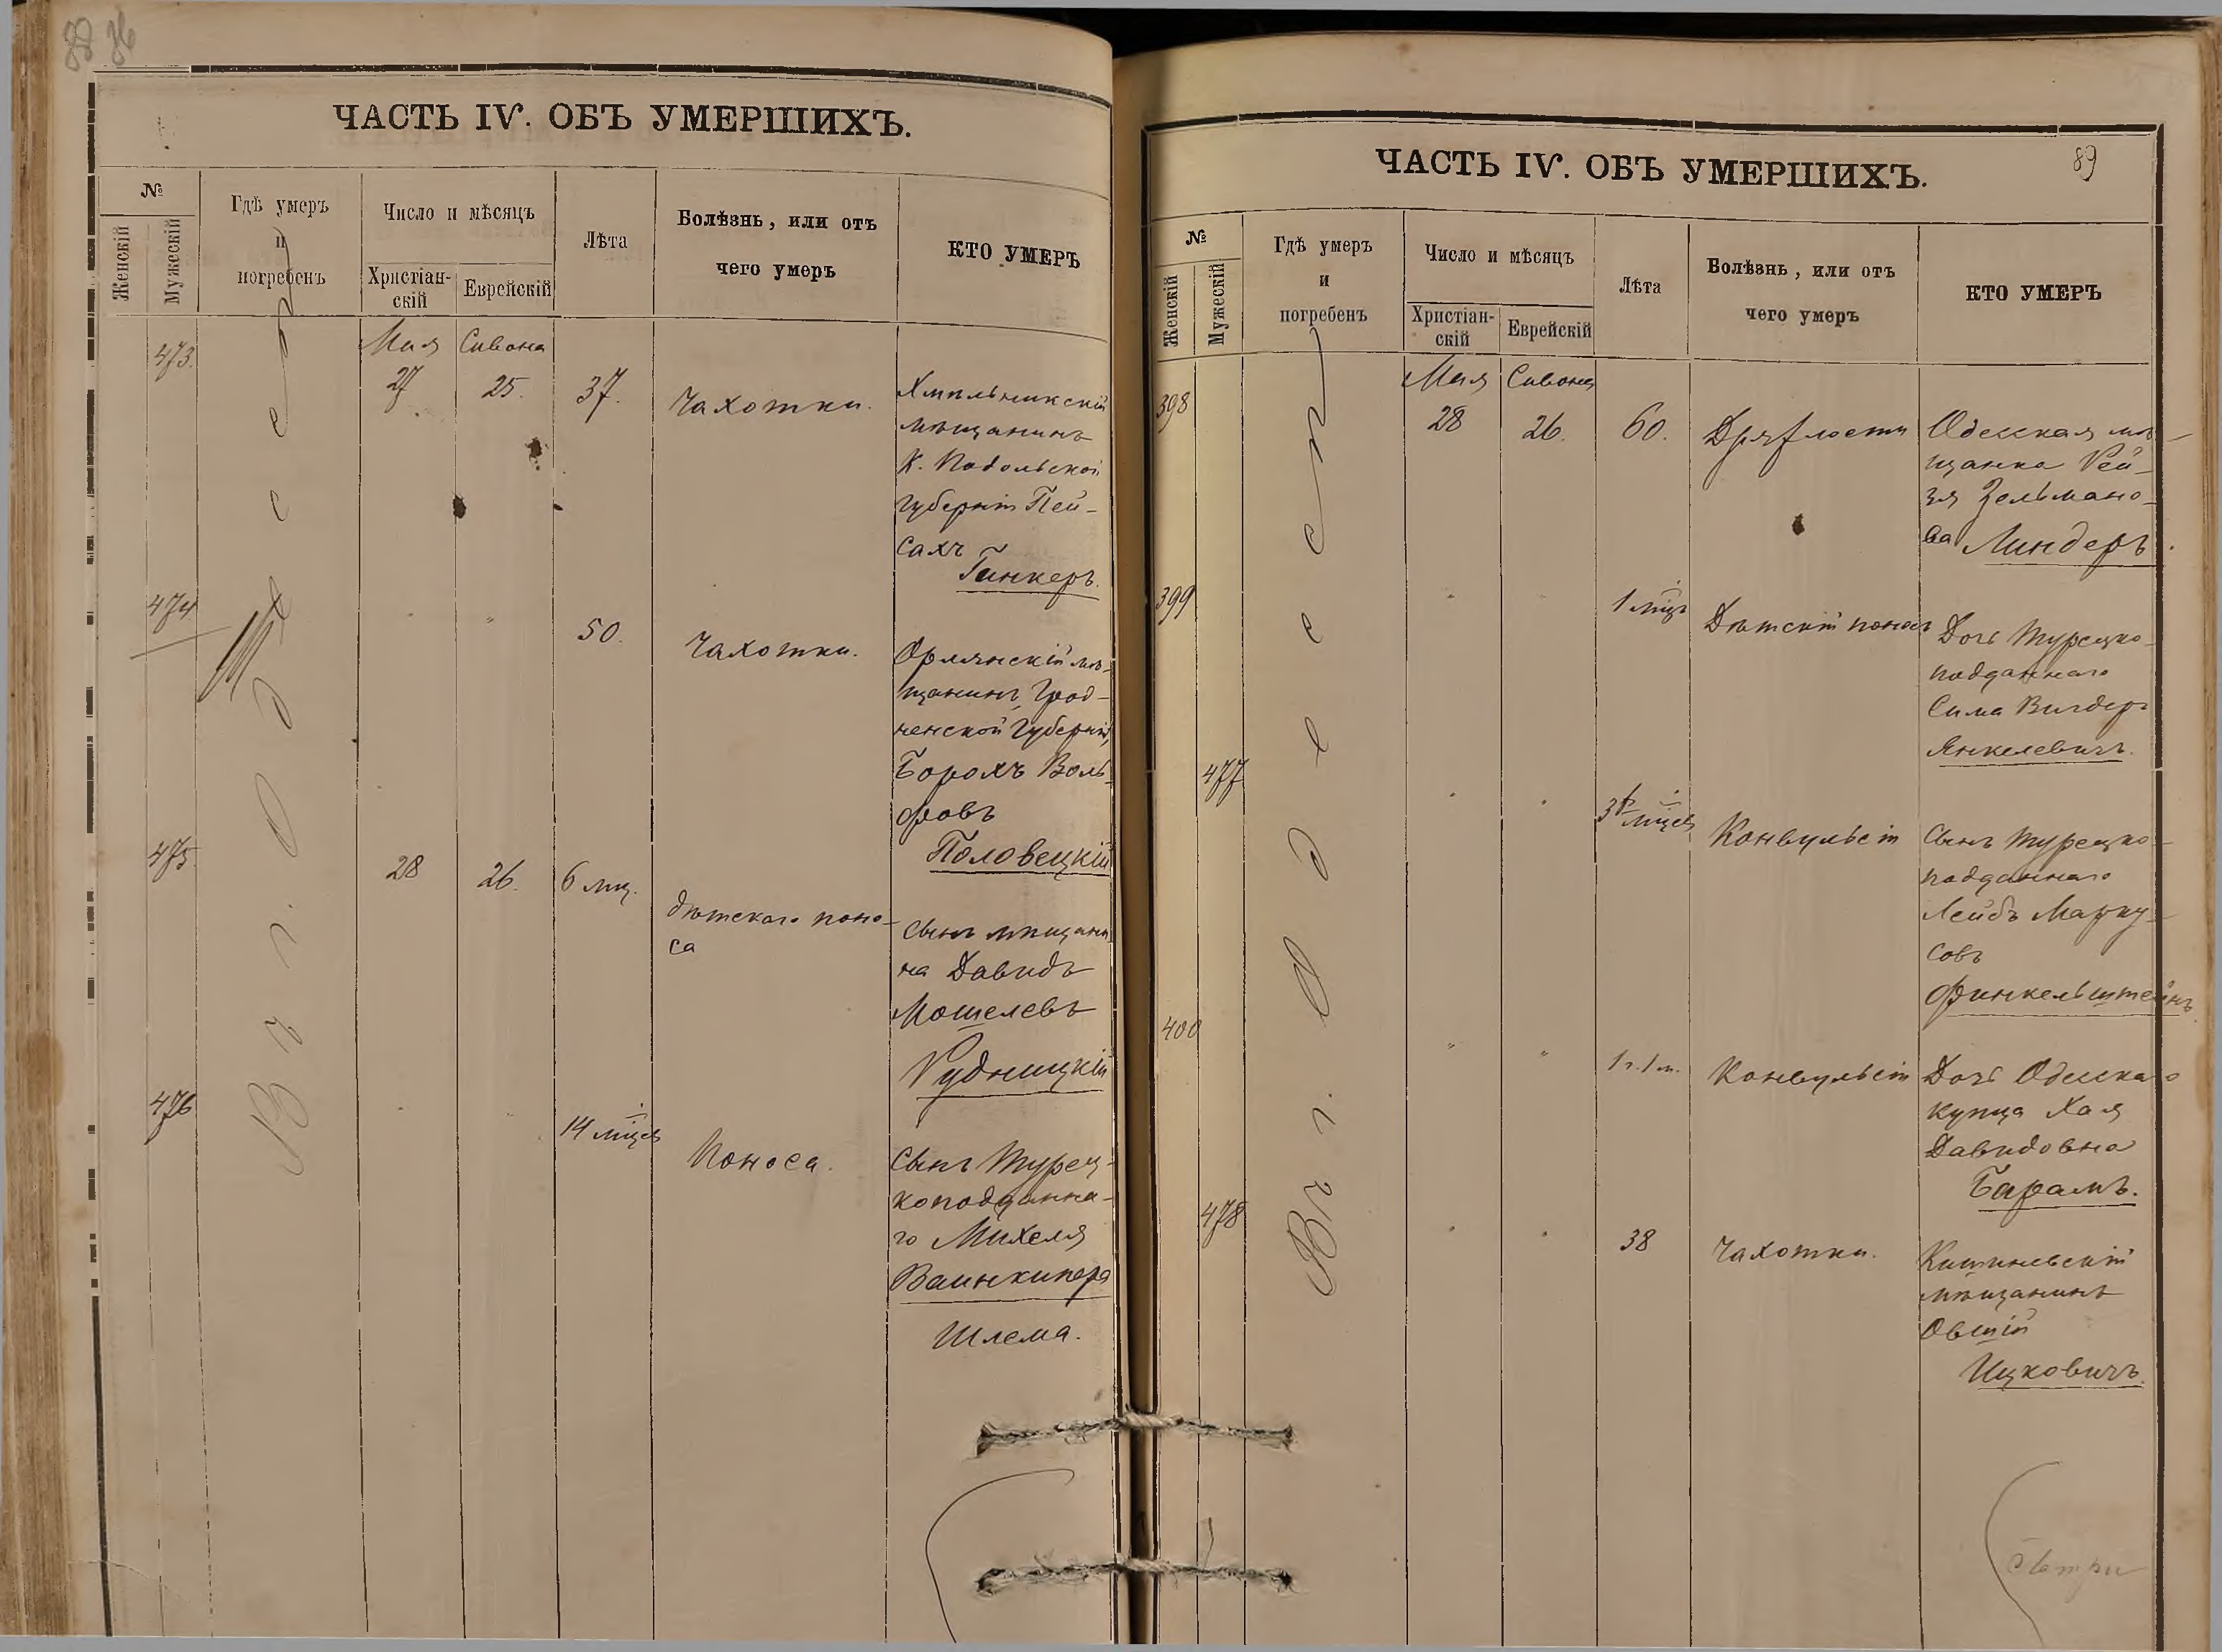 88 36
ЧАСТЬ IV. ОБЪ УМЕРШИХЪ.
№
Женскій
Мужескій
Гдѣ умеръ
и
погребенъ
Число и мѣсяцъ
Христіан-
скій
Еврейскій
Лѣта
Болѣзнь, или отъ
чего умеръ
КТО УМЕРЪ
Въ г. Одессѣ
473.
Мая Сивона
27 25. 37. Чахотки.
Хмѣльникскій
мѣщанинъ
К. Подольской
губерніи Пей-
сахъ
Гинкеръ.
474
" " 50. Чахотки.
Орлянскій мѣ-
щанинъ, Грод-
ненской Губерніи,
Борохъ Воль-
фовъ
Половецкій
475
28 26. 6 мц.
дѣтскаго поно-
са
Сынъ мѣщани
на Давидъ
Мошелевъ
Рудницкій
476
" " 14 мцев Поноса.
Сынъ Турец-
коподданна-
го Михеля
Ваинкипера
Шлема.
89
ЧАСТЬ IV. ОБЪ УМЕРШИХЪ.
№
Женскій
Мужескій
Гдѣ умеръ
и
погребенъ
Число и мѣсяцъ
Христіан-
скій
Еврейскій
Лѣта
Болѣзнь, или отъ
чего умеръ
КТО УМЕРЪ
Въ г. Одессѣ
398
Мая Сивона
28 26. 60. Дряхлости
Одесская мѣ-
щанка Рей-
зя Зельмано-
ва Линдеръ.
399
" " 1 мцъ Дѣтскій поносъ
Дочь Турецко-
подданнаго
Сима Вигдеръ
Янкелевичъ.
477
" " 3 мцев Конвульсіи
Сынъ Турецко-
подданнаго
Лейбъ Марку-
совъ
Финкельштейнъ
400
" " 1 г. 1 м. Конвульсіи
Дочь Одесскаго
купца Хая
Давидовна
Барамъ.
478
" " 38 Чахотки.
Кишиневскій
мѣщанинъ
Овшій
Ицковичъ.